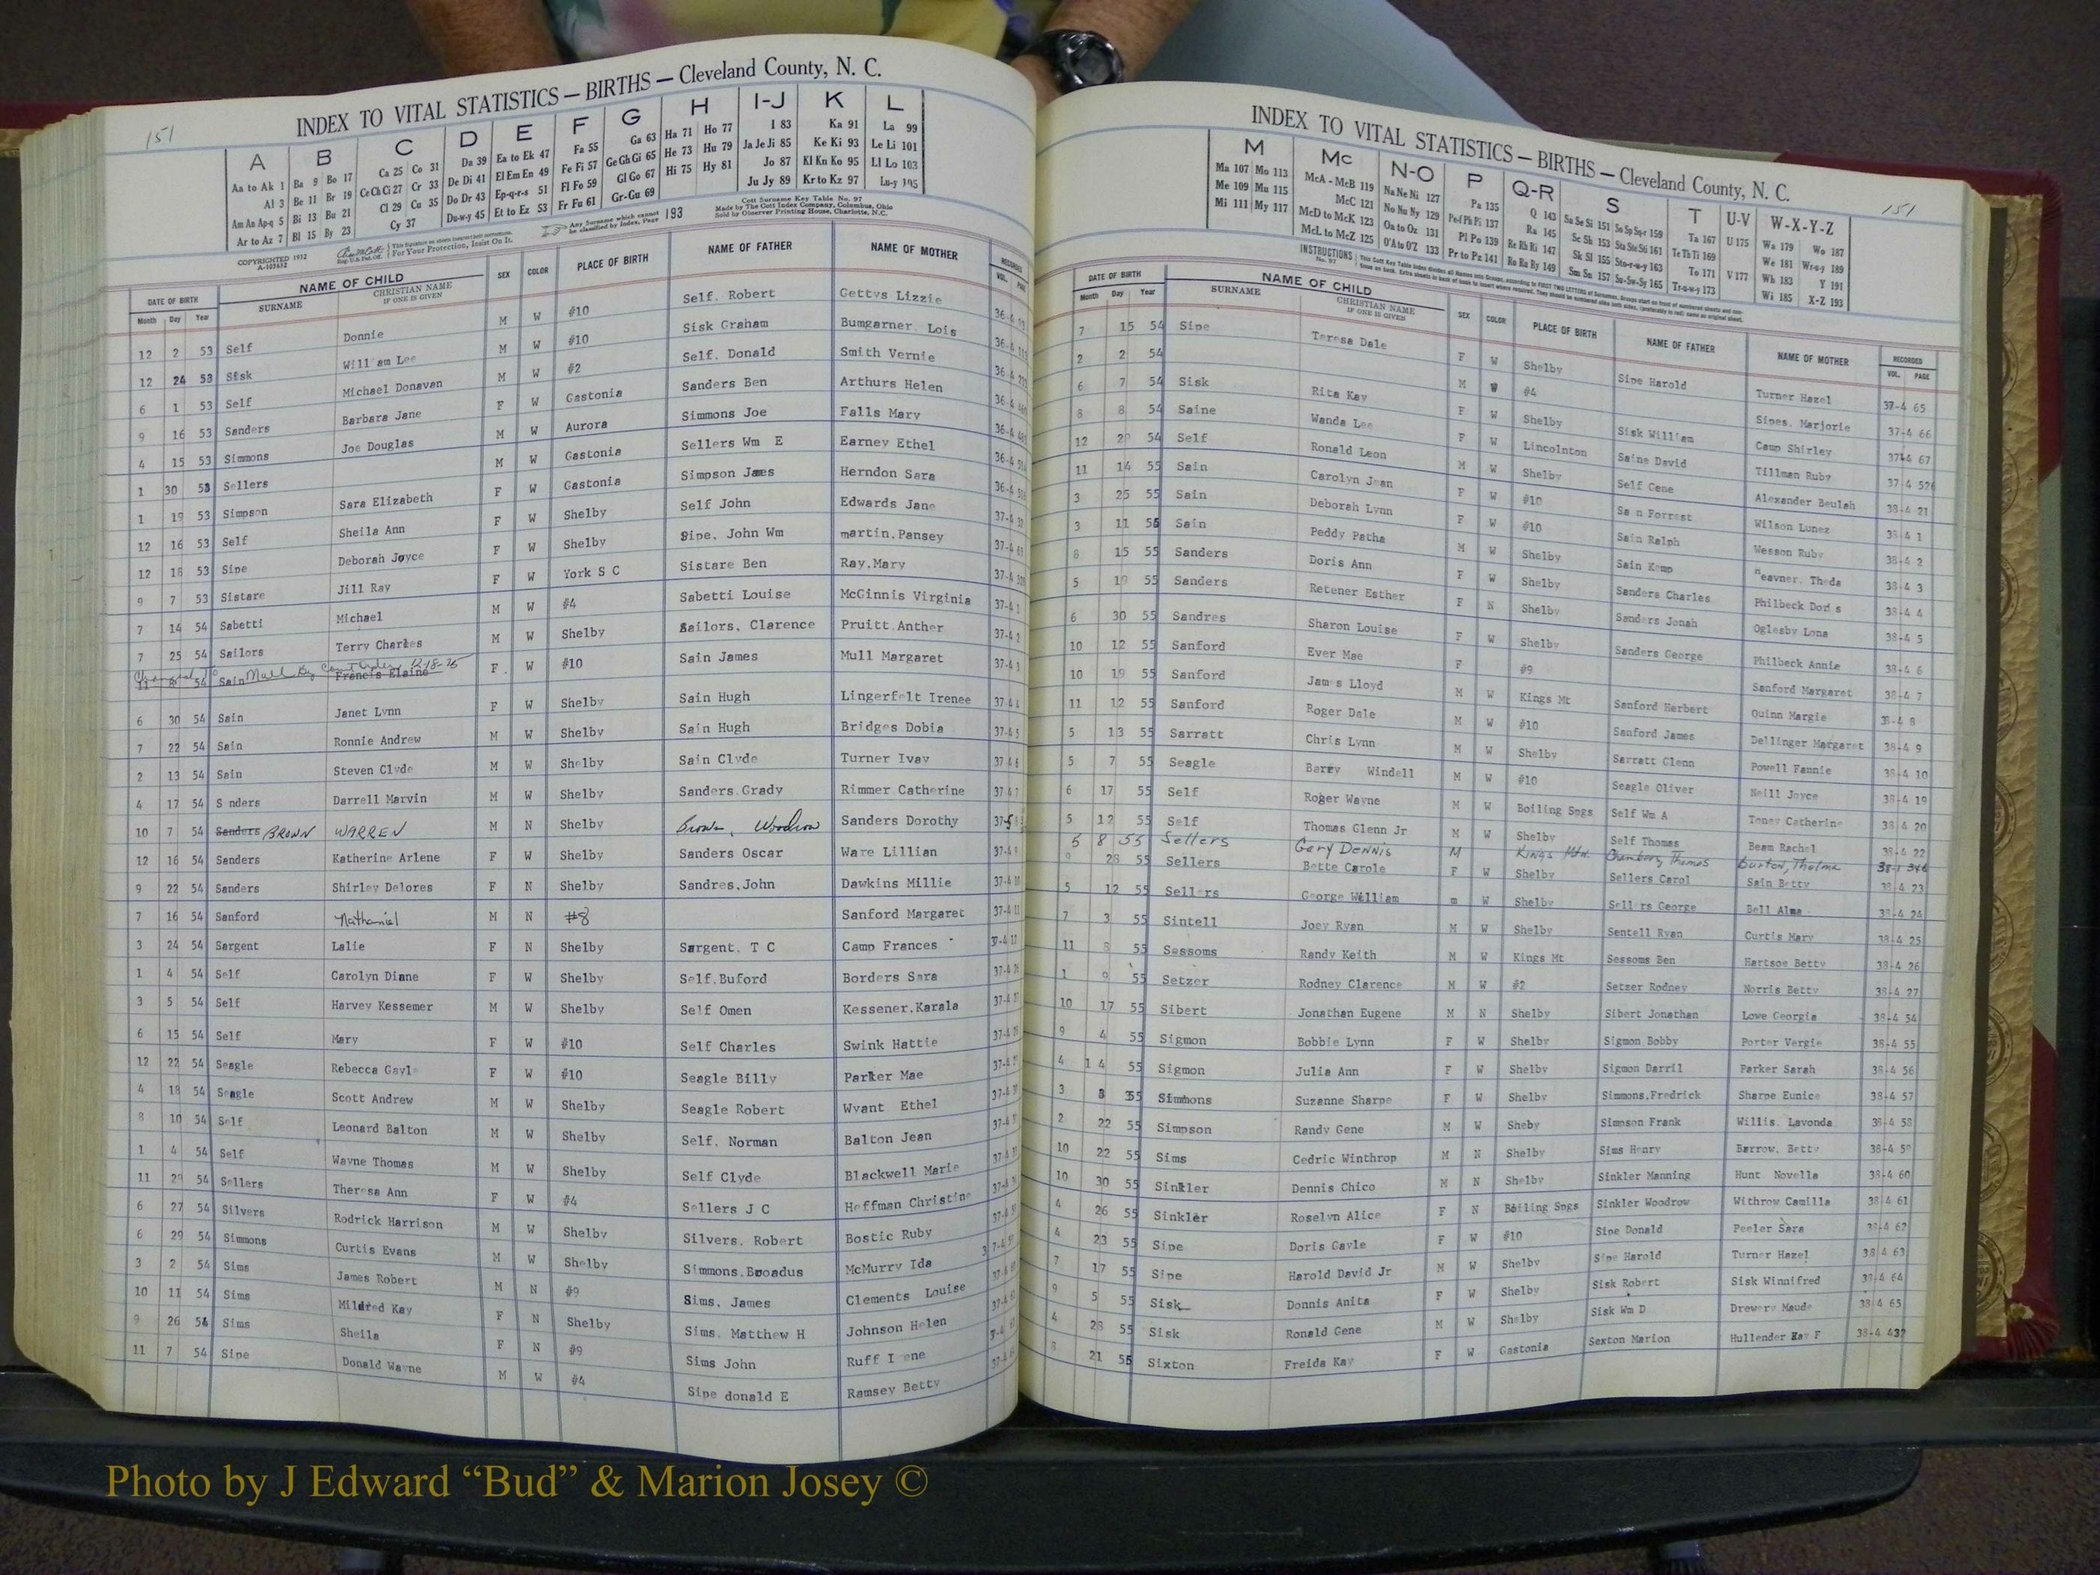 151
INDEX TO VITAL STATISTICS — BIRTHS — Cleveland County, N. C.
A B C D E F G H I-J K L
Aa to Ak 1 Ba 9 Bo 17 Ca 25 Co 31 Da 39 Ea to Ek 47 Fa 55 Ga 63 Ha 71 Ho 77 I 83 Ka 91 La 99
Al 3 Be 11 Br 19 Ce Ch Ci 27 Cr 33 De Di 41 El Em En 49 Fe Fi 57 Ge Gh Gi 65 He 73 Hu 79 Ja Je Ji 85 Ke Ki 93 Le Li 101
Am An Ap-q 5 Bi 13 Bu 21 Cl 29 Cu 35 Do Dr 43 Ep-q-r-s 51 Fl Fo 59 Gl Go 67 Hi 75 Hy 81 Jo 87 Kl Kn Ko 95 Ll Lo 103
Ar to Az 7 Bl 15 By 23 Cy 37 Du-w-y 45 Et to Ez 53 Fr Fu 61 Gr-Gu 69 Ju Jy 89 Kr to Kz 97 Lu-y 105
COPYRIGHTED 1932
For Your Protection, Insist On It.
Any Surname which cannot be classified by Index, Page 193
Cott Surname Key Table No. 97
Made by The Cott Index Company, Columbus, Ohio
Sold by Observer Printing House, Charlotte, N.C.
DATE OF BIRTH NAME OF CHILD SEX COLOR PLACE OF BIRTH NAME OF FATHER NAME OF MOTHER RECORDED
Month Day Year SURNAME CHRISTIAN NAME IF ONE IS GIVEN VOL. PAGE
12 2 53 Self Donnie M W #10 Self. Robert Gettys Lizzie 36-4
12 24 53 Sisk William Lee M W #10 Sisk Graham Bumgarner. Lois 36-4
6 1 53 Self Michael Donavan M W #2 Self. Donald Smith Vernie 36-4
9 16 53 Sanders Barbara Jane F W Gastonia Sanders Ben Arthurs Helen 36-4
4 15 53 Simmons Joe Douglas M W Aurora Simmons Joe Falls Mary 36-4
1 30 53 Sellers M W Gastonia Sellers Wm E Earney Ethel 36-4
1 19 53 Simpson Sara Elizabeth F W Gastonia Simpson James Herndon Sara 36-4
12 16 53 Self Sheila Ann F W Shelby Self John Edwards Jane 37-4
12 18 53 Sipe Deborah Joyce F W Shelby Sipe, John Wm martin.Pansey 37-4
9 7 53 Sistare Jill Ray F W York S C Sistare Ben Ray.Mary 37-4
7 14 54 Sabetti Michael M W #4 Sabetti Louise McGinnis Virginia 37-4 1
7 25 54 Sailors Terry Charles M W Shelby Sailors, Clarence Pruitt.Anther 37-4 2
11 8 54 Sain Mull By Court Order 12-18-75 Francis Elaine F W #10 Sain James Mull Margaret 37-4 3
6 30 54 Sain Janet Lynn F W Shelby Sain Hugh Lingerfelt Irenee 37 4 4
7 22 54 Sain Ronnie Andrew M W Shelby Sain Hugh Bridges Dobia 37-4 5
2 13 54 Sain Steven Clyde M W Shelby Sain Clyde Turner Ivay 37 4 6
4 17 54 S nders Darrell Marvin M W Shelby Sanders.Grady Rimmer Catherine 37 4 7
10 7 54 Sanders BROWN WARREN M N Shelby Brown, Woodrow Sanders Dorothy 37-
12 16 54 Sanders Katherine Arlene F W Shelby Sanders Oscar Ware Lillian 37-4 9
9 22 54 Sanders Shirley Delores F N Shelby Sandres,John Dawkins Millie 37-4 10
7 16 54 Sanford Nathaniel M N #8 Sanford Margaret 37-4 11
3 24 54 Sargent Lalie F N Shelby Sargent. T C Camp Frances 37-4 12
1 4 54 Self Carolyn Diane F W Shelby Self.Buford Borders Sara 37-4 26
3 5 54 Self Harvey Kessemer M W Shelby Self Omen Kessener.Karala 37-4 27
6 15 54 Self Mary F W #10 Self Charles Swink Hattie 37-4 28
12 22 54 Seagle Rebecca Gayle F W #10 Seagle Billy Parker Mae 37-4
4 18 54 Seagle Scott Andrew M W Shelby Seagle Robert Wyant Ethel 37-4
8 10 54 Self Leonard Balton M W Shelby Self. Norman Balton Jean 37-4
1 4 54 Self Wayne Thomas M W Shelby Self Clyde Blackwell Marie 37-4
11 29 54 Sellers Theresa Ann F W #4 Sellers J C Hoffman Christine 37-4
6 27 54 Silvers Rodrick Harrison M W Shelby Silvers. Robert Bostic Ruby 37-4
6 29 54 Simmons Curtis Evans M W Shelby Simmons.Broadus McMurry Ida 37-4
3 2 54 Sims James Robert M N #9 Sims. James Clements Louise 37-4
10 11 54 Sims Mildred Kay F N Shelby Sims. Matthew H Johnson Helen 37-4
9 26 54 Sims Sheila F N #9 Sims John Ruff I ene 37-4
11 7 54 Sipe Donald Wayne M W #4 Sipe donald E Ramsey Betty
151
INDEX TO VITAL STATISTICS — BIRTHS — Cleveland County, N. C.
M Mc N-O P Q-R S T U-V W-X-Y-Z
Ma 107 Mo 113 McA - McB 119 Na Ne Ni 127 Pa 135 Q 143 Sa Se Si 151 So Sp Sq-r 159 Ta 167 U 175 Wa 179 Wo 187
Me 109 Mu 115 McC 121 No Nu Ny 129 Pe-f Ph Pi 137 Ra 145 Sc Sh 153 Sta Ste Sti 161 Te Th Ti 169 We 181 Wr-u-y 189
Mi 111 My 117 McD to McK 123 Oa to Oz 131 Pl Po 139 Re Rh Ri 147 Sk Sl 155 Sto-r-u-y 163 To 171 V 177 Wh 183 Y 191
McL to McZ 125 O'A to O'Z 133 Pr to Pz 141 Ro Ru Ry 149 Sm Sn 157 Su-Sw-Sy 165 Tr-u-w-y 173 Wi 185 X-Z 193
INSTRUCTIONS
DATE OF BIRTH NAME OF CHILD SEX COLOR PLACE OF BIRTH NAME OF FATHER NAME OF MOTHER RECORDED
Month Day Year SURNAME CHRISTIAN NAME IF ONE IS GIVEN VOL. PAGE
7 15 54 Sipe Teresa Dale F W Shelby Sipe Harold Turner Hazel 37-4 65
2 2 54 M W #4 Sipes. Marjorie 37-4 66
6 7 54 Sisk Rita Kay F W Shelby Sisk William Camp Shirley 37-4 67
8 8 54 Saine Wanda Lee F W Lincolnton Saine David Tillman Ruby 37-4 526
12 29 54 Self Ronald Leon M W Shelby Self Gene Alexander Beulah 38-4 21
11 14 55 Sain Carolyn Jean F W #10 Sa n Forrest Wilson Lunez 38-4 1
3 25 55 Sain Deborah Lynn F W #10 Sain Ralph Wesson Ruby 38-4 2
3 11 55 Sain Peddy Patha M W Shelby Sain Kemp eavner. Theda 38-4 3
8 15 55 Sanders Doris Ann F W Shelby Sanders Charles Philbeck Doris 38-4 4
5 19 55 Sanders Retener Esther F N Shelby Sanders Jonah Oglesby Lona 38-4 5
6 30 55 Sandres Sharon Louise F W Shelby Sanders George Philbeck Annie 38-4 6
10 12 55 Sanford Ever Mae F #9 Sanford Margaret 38-4 7
10 19 55 Sanford James Lloyd M W Kings Mt Sanford Herbert Quinn Margie 38-4 8
11 12 55 Sanford Roger Dale M W #10 Sanford James Dellinger Margaret 38-4 9
5 13 55 Sarratt Chris Lynn M W Shelby Sarratt Glenn Powell Fannie 38-4 10
5 7 55 Seagle Barry Windell M W #10 Seagle Oliver Neill Joyce 38-4 19
6 17 55 Self Roger Wayne M W Boiling Spgs Self Wm A Toney Catherine 38 4 20
5 12 55 Self Thomas Glenn Jr M W Shelby Self Thomas Beam Rachel 38-4 22
5 8 55 Sellers Gary Dennis M Kings Mtn. Chambers, Thomas Burton, Thelma 38-1 346
9 28 55 Sellers Bette Carole F W Shelby Sellers Carol Sain Betty 38-4 23
5 12 55 Sellers George William m W Shelby Sell rs George Bell Alma 38-4 24
7 3 55 Sintell Joey Ryan M W Shelby Sentell Ryan Curtis Mary 38-4 25
11 8 55 Sessoms Randy Keith M W Kings Mt Sessoms Ben Hartsoe Betty 38-4 26
1 9 55 Setzer Rodney Clarence M W #2 Setzer Rodney Norris Betty 38-4 27
10 17 55 Sibert Jonathan Eugene M N Shelby Sibert Jonathan Lowe Georgia 38-4 54
9 4 55 Sigmon Bobbie Lynn F W Shelby Sigmon Bobby Porter Vergie 38-4 55
4 14 55 Sigmon Julia Ann F W Shelby Sigmon Darril Parker Sarah 38-4 56
3 8 55 Simmons Suzanne Sharpe F W Shelby Simmons.Fredrick Sharpe Eunice 38-4 57
2 22 55 Simpson Randy Gene M W Sheby Simpson Frank Willis. Lavonda 38-4 58
10 22 55 Sims Cedric Winthrop M N Shelby Sims Henry Barrow. Betty 38-4 59
10 30 55 Sinkler Dennis Chico M N Shelby Sinkler Manning Hunt Novella 38-4 60
4 26 55 Sinkler Roselyn Alice F N Boiling Spgs Sinkler Woodrow Withrow Camilla 38 4 61
4 23 55 Sipe Doris Gayle F W #10 Sipe Donald Peeler Sara 38-4 62
7 17 55 Sipe Harold David Jr M W Shelby Sipe Harold Turner Hazel 38 4 63
9 5 55 Sisk Donnis Anita F W Shelby Sisk Robert Sisk Winnifred 38-4 64
4 28 55 Sisk Ronald Gene M W Shelby Sisk Wm D Drewery Maude 38-4 65
8 21 55 Sixton Freida Kay F W Gastonia Sexton Marion Hullender Kay F 38-4 432
Photo by J Edward “Bud” & Marion Josey ©